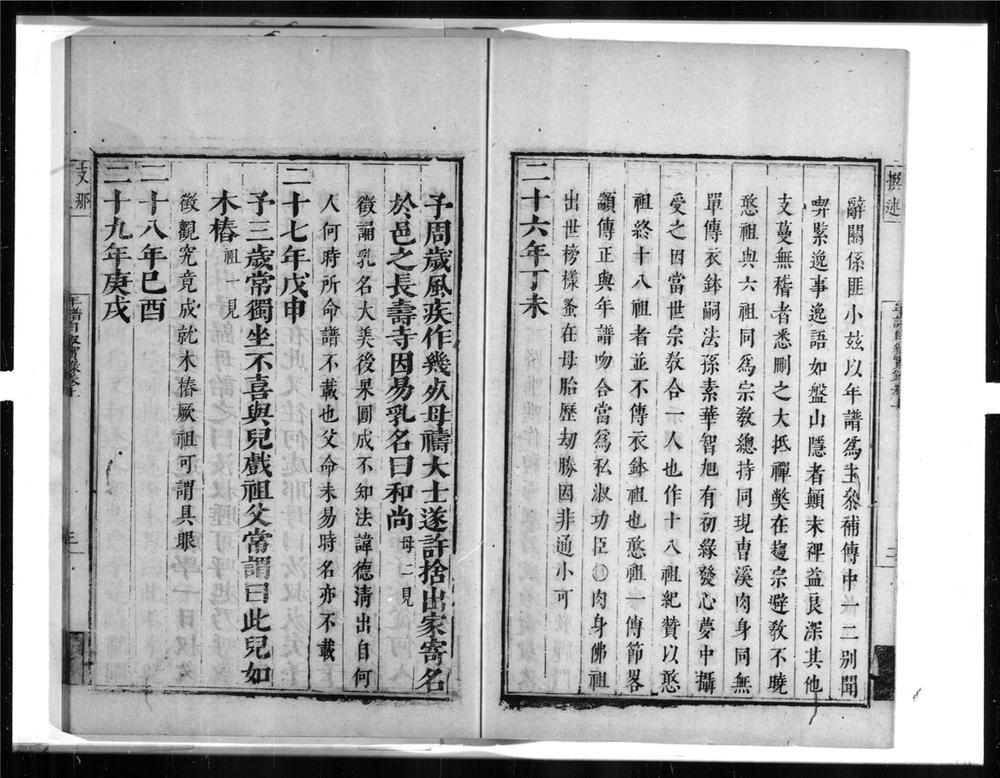 撰述
辭關係匪小玆以年譜爲主叅補傳中一二別聞
喫緊逸事逸語如盤山隱者顛末裨益良深其他
支蔓無稽者悉刪之大抵禪獘在趨宗避敎不曉
憨祖與六祖同爲宗敎總持同現曹溪肉身同無
單傳衣鉢嗣法孫素華智旭有初緣發心夢中攝
受之因當世宗敎合一人也作十八祖紀贊以憨
祖終十八祖者並不傳衣鉢祖也憨祖一傳節畧
顓傳正與年譜吻合當爲私淑功臣 肉身佛祖
出世榜樣蚤在母胎歷劫勝因非通小可
二十六年丁未
予周歲風疾作幾死母禱大士遂許捨出家寄名
於邑之長壽寺因易乳名曰和尚母二見
徵誦乳名大美後果圓成不知法諱德淸出自何
人何時所命譜不載也父命未易時名亦不載
二十七年戊申
予三歲常獨坐不喜與兒戲祖父常謂曰此兒如
木樁祖一見
徵觀究竟成就木樁厥祖可謂具眼
二十八年己酉
二十九年庚戌
支那
三